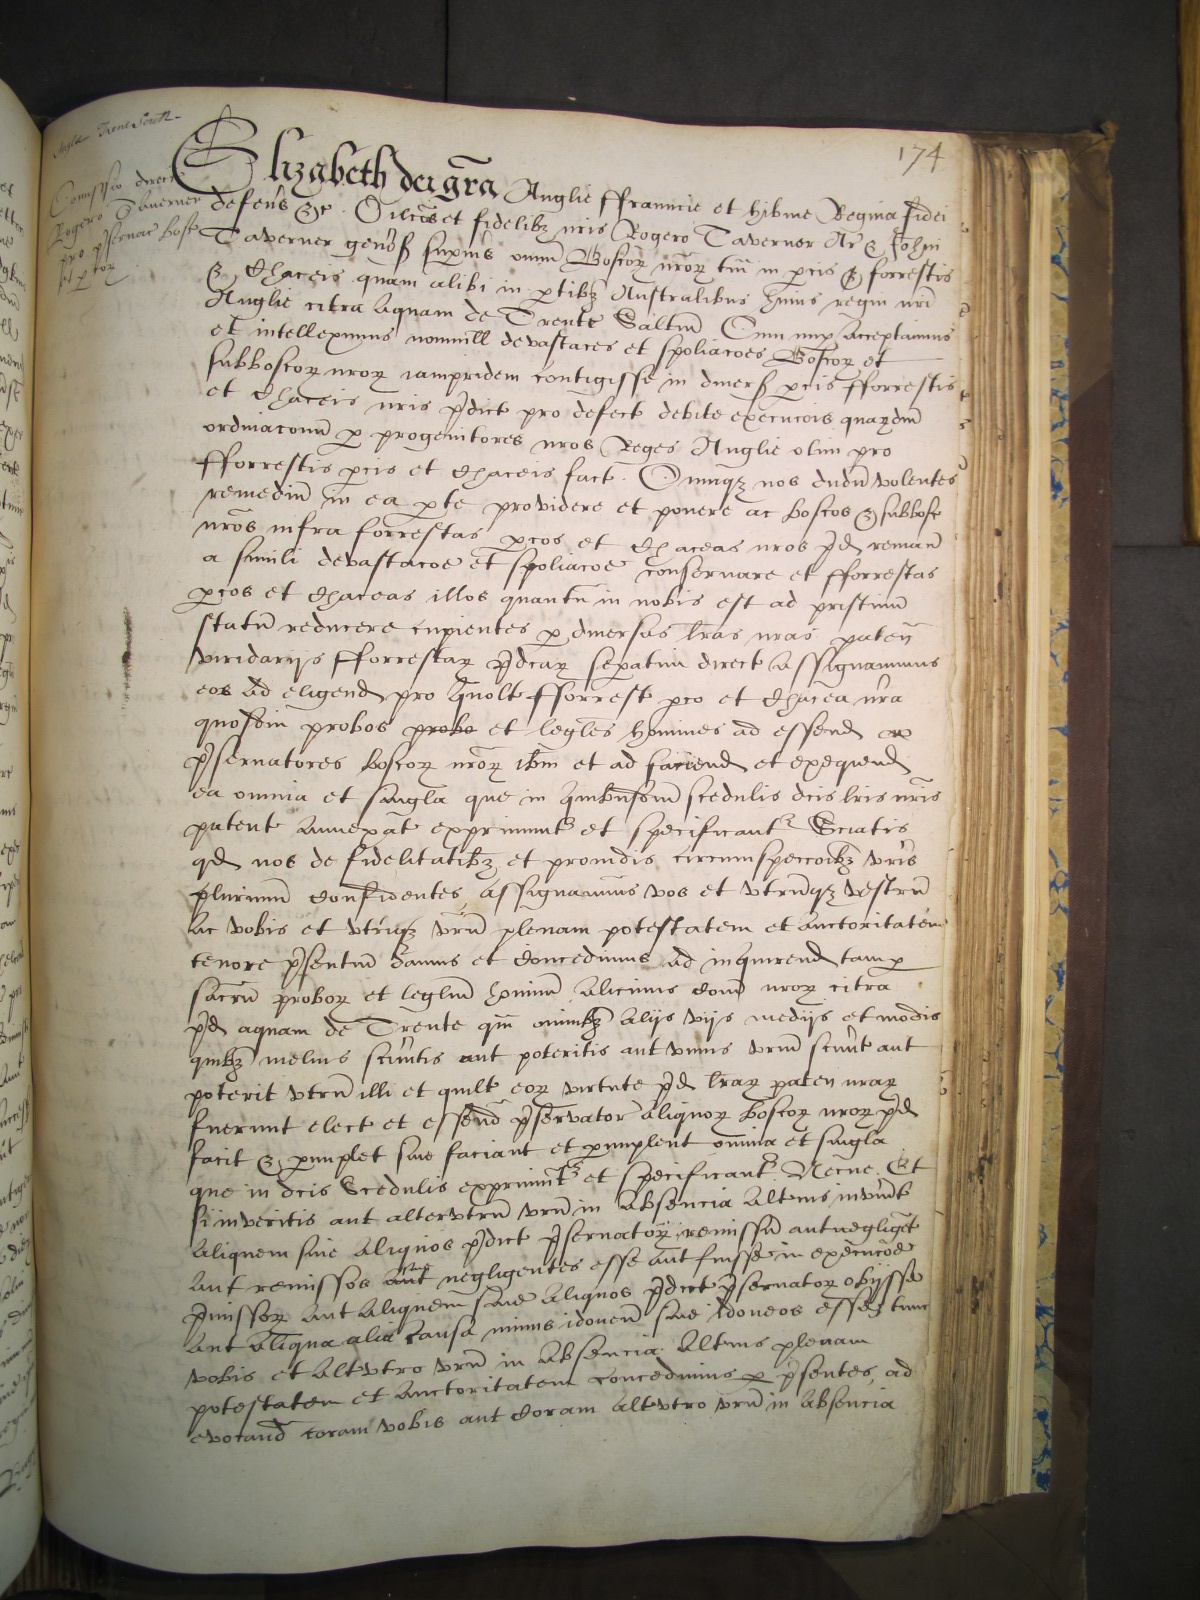 174
Anglie Trent South
Comissio direct
Rogero Taverner
pro preservac bosc
Elizabeth dei gra Anglie ffrauncie et hibnie Regina fidei
defens &c. Dilcis et fidelibz nris Rogero Taverner Ar & Johi
Taverner genos supvis omm Boscor nror tm in pcis & forrestis
& Chaceis quam alibi in ptibz Australibus huius regni nri
Anglie citra aquam de Trente Saltm Cum nup acceptaimus
et intelleximus nonnull devastacoes et spoliacoes Boscor et
subboscor nror iampridem contigisse in divers pcis fforrestis
et Chaceis nris pdict pro defect debite execucois quardm
ordinaconu p progenitores nros Reges Anglie olim pro
fforrestis pcis et Chaceis fact. Cumqz nos dudu volentes
remediu in ea pte providere et ponere ac boscos & subbosc
nros infra forrestas pcos et Chaceas nros pd remane
a simili devastacoe et spoliacoe conservare et fforrestas
pcos et Chaceas illos quantu in nobis est ad pristinu
statu reducere cupientes p diversas lras nras paten
viridarijs fforrestar pdcar sepatim direct assignavimus
eos ad eligend pro quolt fforrest pco et Chacea nra
quosdm probos probo et legles homines ad essend
pservatores boscor nror ibm et ad faciend et exequend
ea omnia et singla que in quibusdm scedulis dcis lris nris
patent annexat exprimunt et specificant Sciatis
qd nos de fidelitatibz et providis circumspeccoibz vris
plurimu confidentes assignavimus vos et vtrumqz vestru
ac vobis et vtriqz vru plenam potestatem et auctoritatem
tenore psentiu damus et concedimus ad inquirend tam p
sacru probor et leglm hominu alicuius com nror citra
pd aquam de Trente qm omnibz alijs vijs medijs et modis
quibz melius sciveritis aut poteritis aut vnus vrm scivit aut
poterit vtru illi et quilt eor virtute pd lrar paten nrar
fuerunt elect et essend pservator aliquor boscor nror pd
facit & pimplet sive faciant et pimplent omnia et singla
que in dcis Scedulis exprimunt et specificant Necne. Et
si inveritis aut altervtru vru in absencia alterius invenit
aliquem sive aliquos pdict pservator remissu aut negligent
aut remissos aut negligentes esse aut fuisse in execucoe
pmissor aut aliquem sive aliquos pdict pservator obijsse
aut aliqua alia causa minus idoneu sive idoneos esse tunc
vobis et altvtro vru in absencia alterius plenam
potestatem et auctoritatem concedimus p psentes ad
evocand coram vobis aut coram altvtro vru in absencia